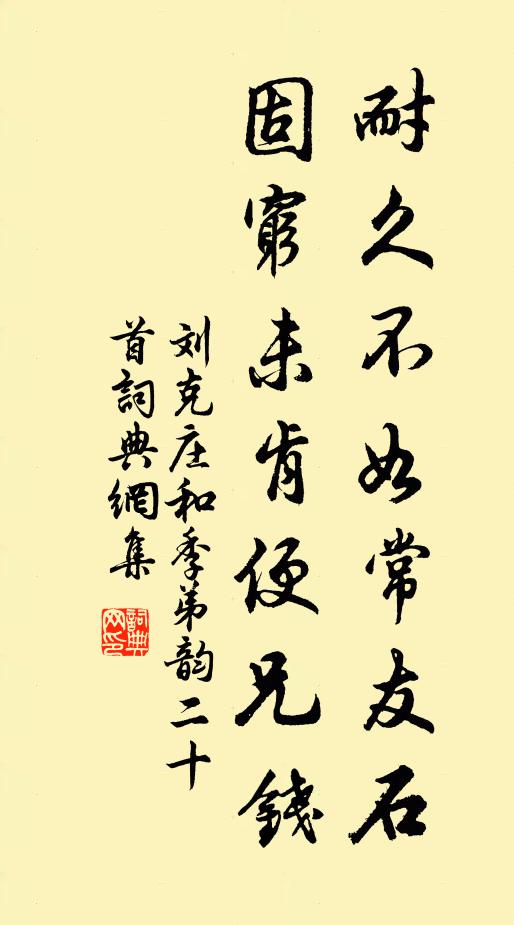 耐久不如常友石
固窮未肯便兄錢
刘克庄和季弟韵二十
首詞典網集
詞典网印